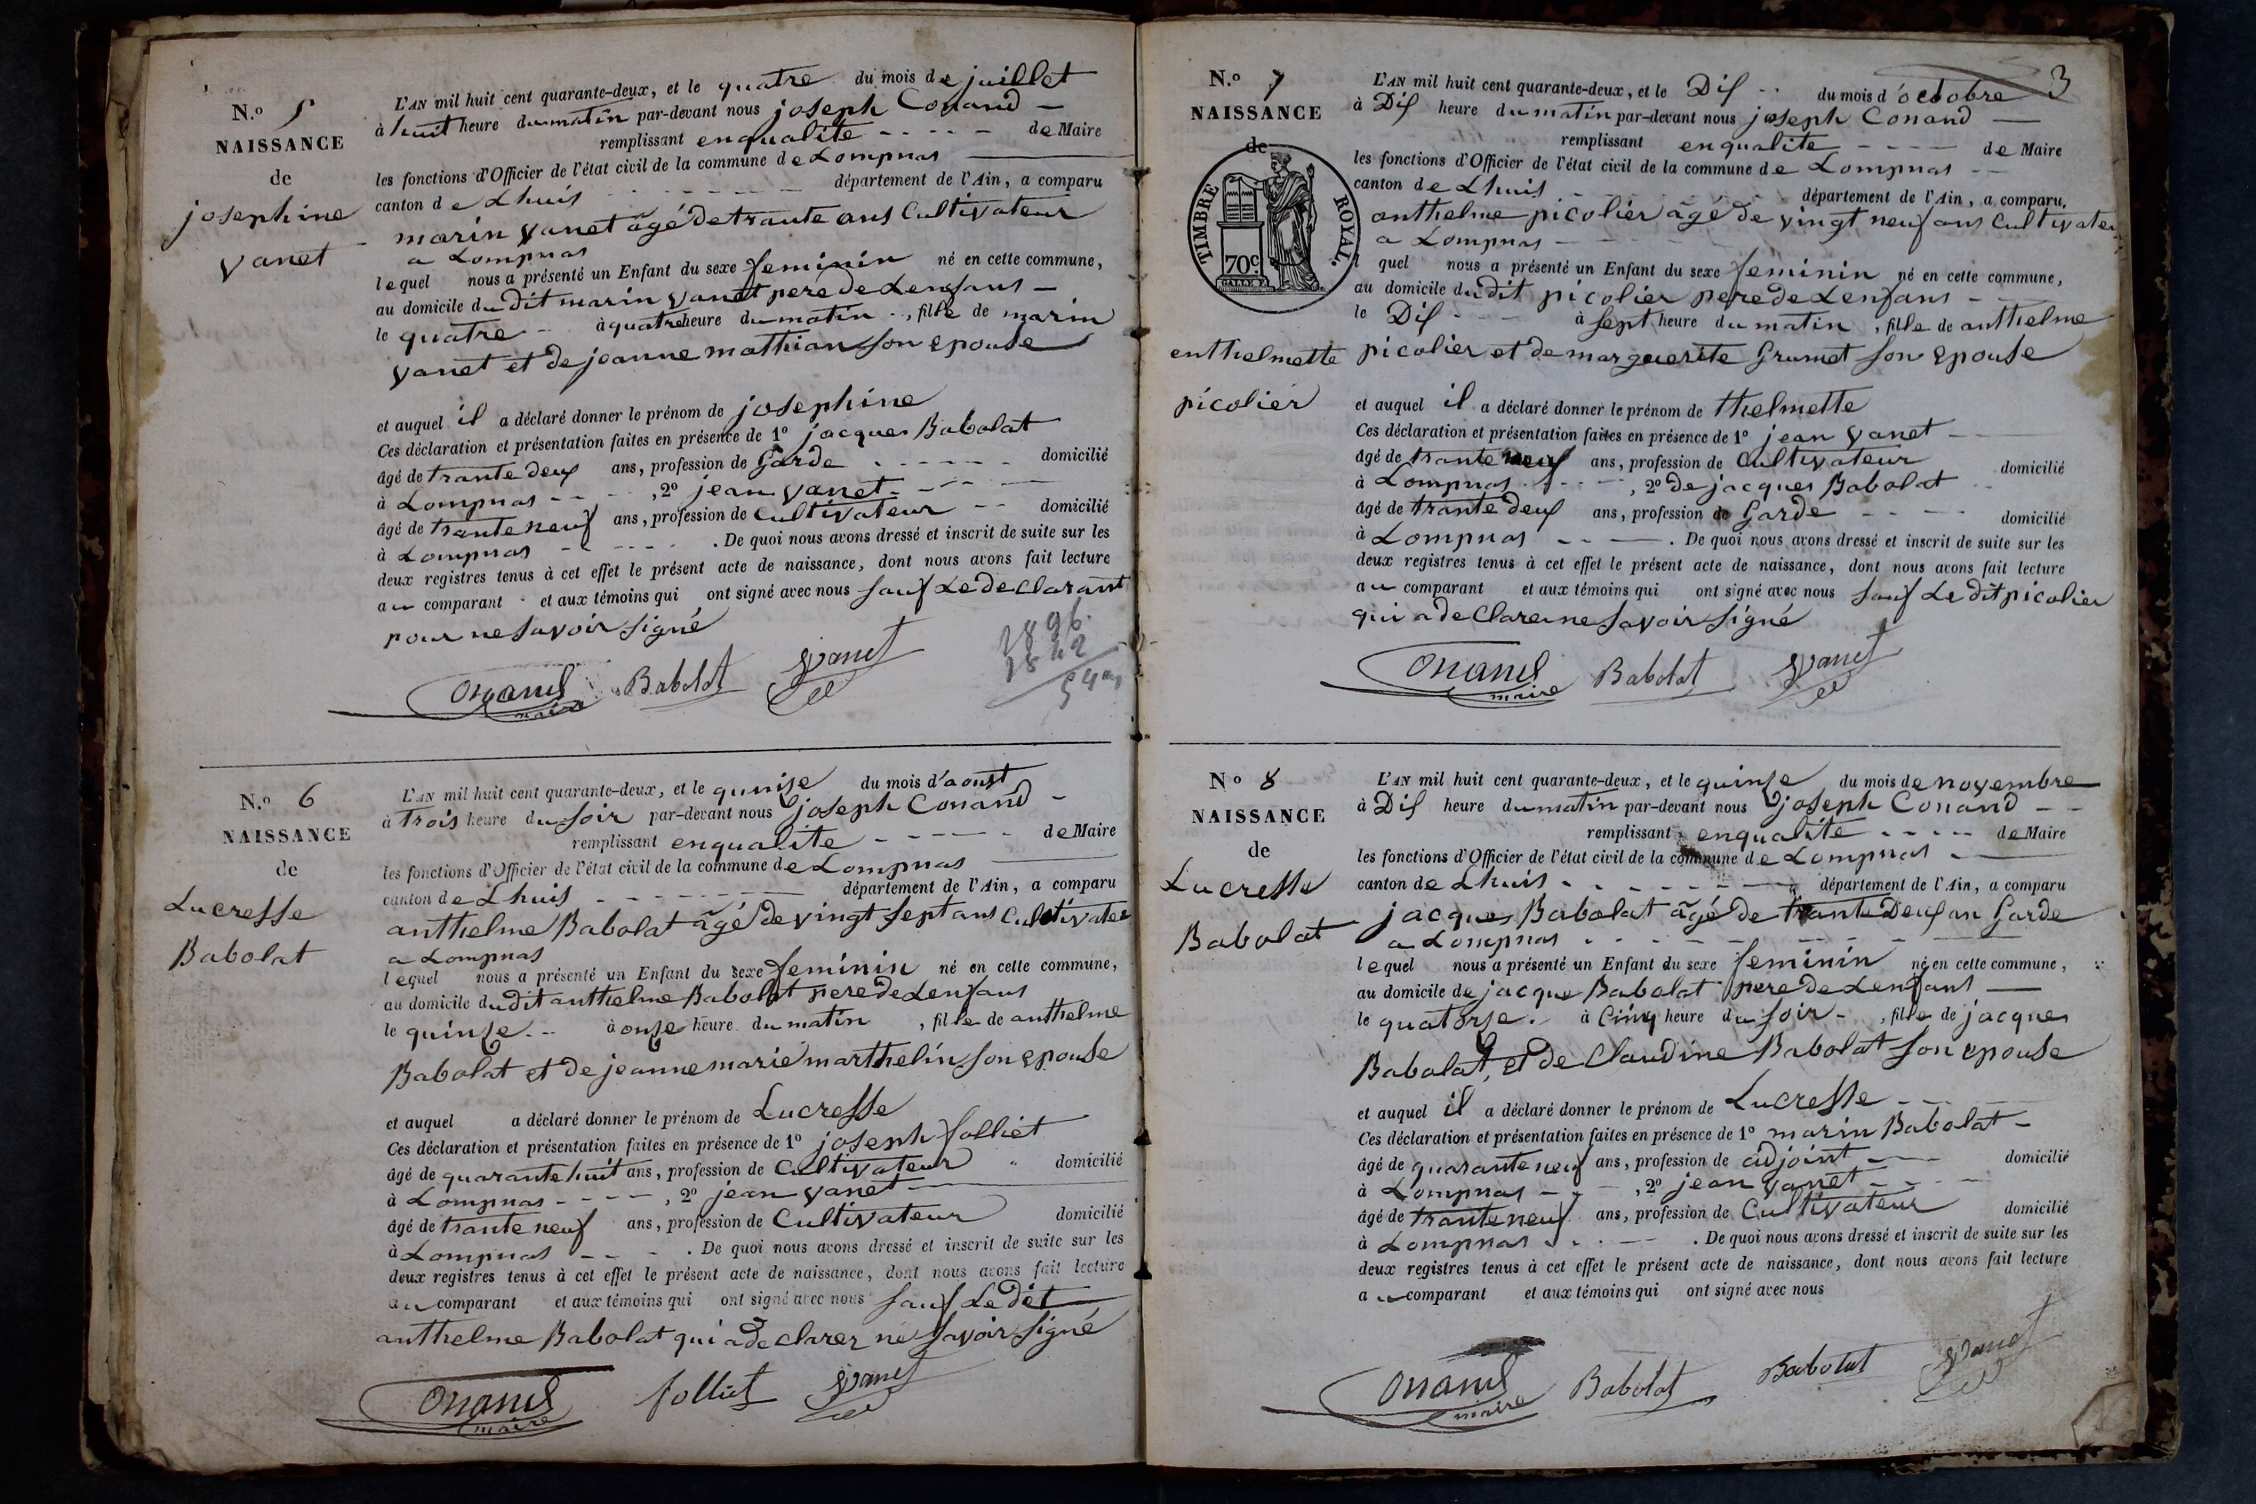 N.o 5
NAISSANCE
de
josephine
vanet
L'AN mil huit cent quarante-deux, et le quatre du mois de juillet
à huit heure du matin par-devant nous joseph Conand
remplissant enqualité de Maire
les fonctions d'Officier de l'état civil de la commune de Lompnas
canton de Lhuis département de l'Ain, a comparu
marin vanet âgé de trante ans Cultivateur
a Lompnas
lequel nous a présenté un Enfant du sexe feminin né en cette commune,
au domicile du dit marin vanet pere de Lenfans
le quatre à quatre heure du matin, fille de marin
vanet et de jeanne mathian son epouse
et auquel il a déclaré donner le prénom de josephine
Ces déclaration et présentation faites en présence de 1o jacques Babolat
âgé de trante deux ans, profession de Garde domicilié
à Lompnas, 2o jean vanet
âgé de trante neuf ans, profession de Cultivateur domicilié
à Lompnas. De quoi nous avons dressé et inscrit de suite sur les
deux registres tenus à cet effet le présent acte de naissance, dont nous avons fait lecture
au comparant et aux témoins qui ont signé avec nous sauf Le declarant
pour ne savoir signé
1896
1842
54 ans
Conand Babolat vanet
maire
N.o 6
NAISSANCE
de
Lucresse
Babolat
L'AN mil huit cent quarante-deux, et le quinse du mois d'aoust
à trois heure du soir par-devant nous joseph Conand
remplissant enqualité de Maire
les fonctions d'Officier de l'état civil de la commune de Lompnas
canton de Lhuis département de l'Ain, a comparu
anthelme Babolat âgé de vingt sept ans Cultivater
a Lompnas
lequel nous a présenté un Enfant du sexe feminin né en cette commune,
au domicile du dit anthelme Babolat pere de Lenfans
le quinze à onze heure du matin, fille de anthelme
Babolat et de jeanne marie marthelin son epouse
et auquel a déclaré donner le prénom de Lucresse
Ces déclaration et présentation faites en présence de 1o joseph folliet
âgé de quarante huit ans, profession de Cultivateur domicilié
à Lompnas, 2o jean vanet
âgé de trante neuf ans, profession de Cultivateur domicilié
à Lompnas. De quoi nous avons dressé et inscrit de suite sur les
deux registres tenus à cet effet le présent acte de naissance, dont nous avons fait lecture
au comparant et aux témoins qui ont signé avec nous sauf Ledit
anthelme Babolat qui a de clarer ne savoir signé
Conand folliet vanet
maire
3
N.o 7
NAISSANCE
de
TIMBRE ROYAL.
70c
enthelmette
picolier
L'AN mil huit cent quarante-deux, et le Dix du mois d'octobre
à Dix heure du matin par-devant nous joseph Conand
remplissant enqualité de Maire
les fonctions d'Officier de l'état civil de la commune de Lompnas
canton de Lhuis département de l'Ain, a comparu
anthelme picolier âgé de vingt neuf ans Cultivateu
a Lompnas
quel nous a présenté un Enfant du sexe feminin né en cette commune,
au domicile du dit picolier pere de Lenfans
le Dix à sept heure du matin, fille de anthelme
picolier et de marguerite Grumet son epouse
et auquel il a déclaré donner le prénom de thelmette
Ces déclaration et présentation faites en présence de 1o jean vanet
âgé de trante neuf ans, profession de Cultivateur domicilié
à Lompnas, 2o de jacques Babolat
âgé de trante deux ans, profession de Garde domicilié
à Lompnas. De quoi nous avons dressé et inscrit de suite sur les
deux registres tenus à cet effet le présent acte de naissance, dont nous avons fait lecture
au comparant et aux témoins qui ont signé avec nous sauf Ledit picolier
qui a de clarer ne savoir signé
Conand Babolat vanet
maire
N.o 8
NAISSANCE
de
Lucresse
Babolat
L'AN mil huit cent quarante-deux, et le quinse du mois de novembre
à Dix heure du matin par-devant nous joseph Conand
remplissant enqualité de Maire
les fonctions d'Officier de l'état civil de la commune de Lompnas
canton de Lhuis département de l'Ain, a comparu
jacques Babolat âgé de trante Deux an Garde
a Lompnas
lequel nous a présenté un Enfant du sexe feminin né en cette commune,
au domicile de jacque Babolat pere de Lenfans
le quatorze à Cinq heure du soir, fille de jacques
Babolat, et de Claudine Babolat son epouse
et auquel il a déclaré donner le prénom de Lucresse
Ces déclaration et présentation faites en présence de 1o marin Babolat
âgé de quarante neuf ans, profession de adjoint domicilié
à Lompnas, 2o jean vanet
âgé de trante neuf ans, profession de Cultivateur domicilié
à Lompnas. De quoi nous avons dressé et inscrit de suite sur les
deux registres tenus à cet effet le présent acte de naissance, dont nous avons fait lecture
au comparant et aux témoins qui ont signé avec nous
Conand Babolat Babolat vanet
maire